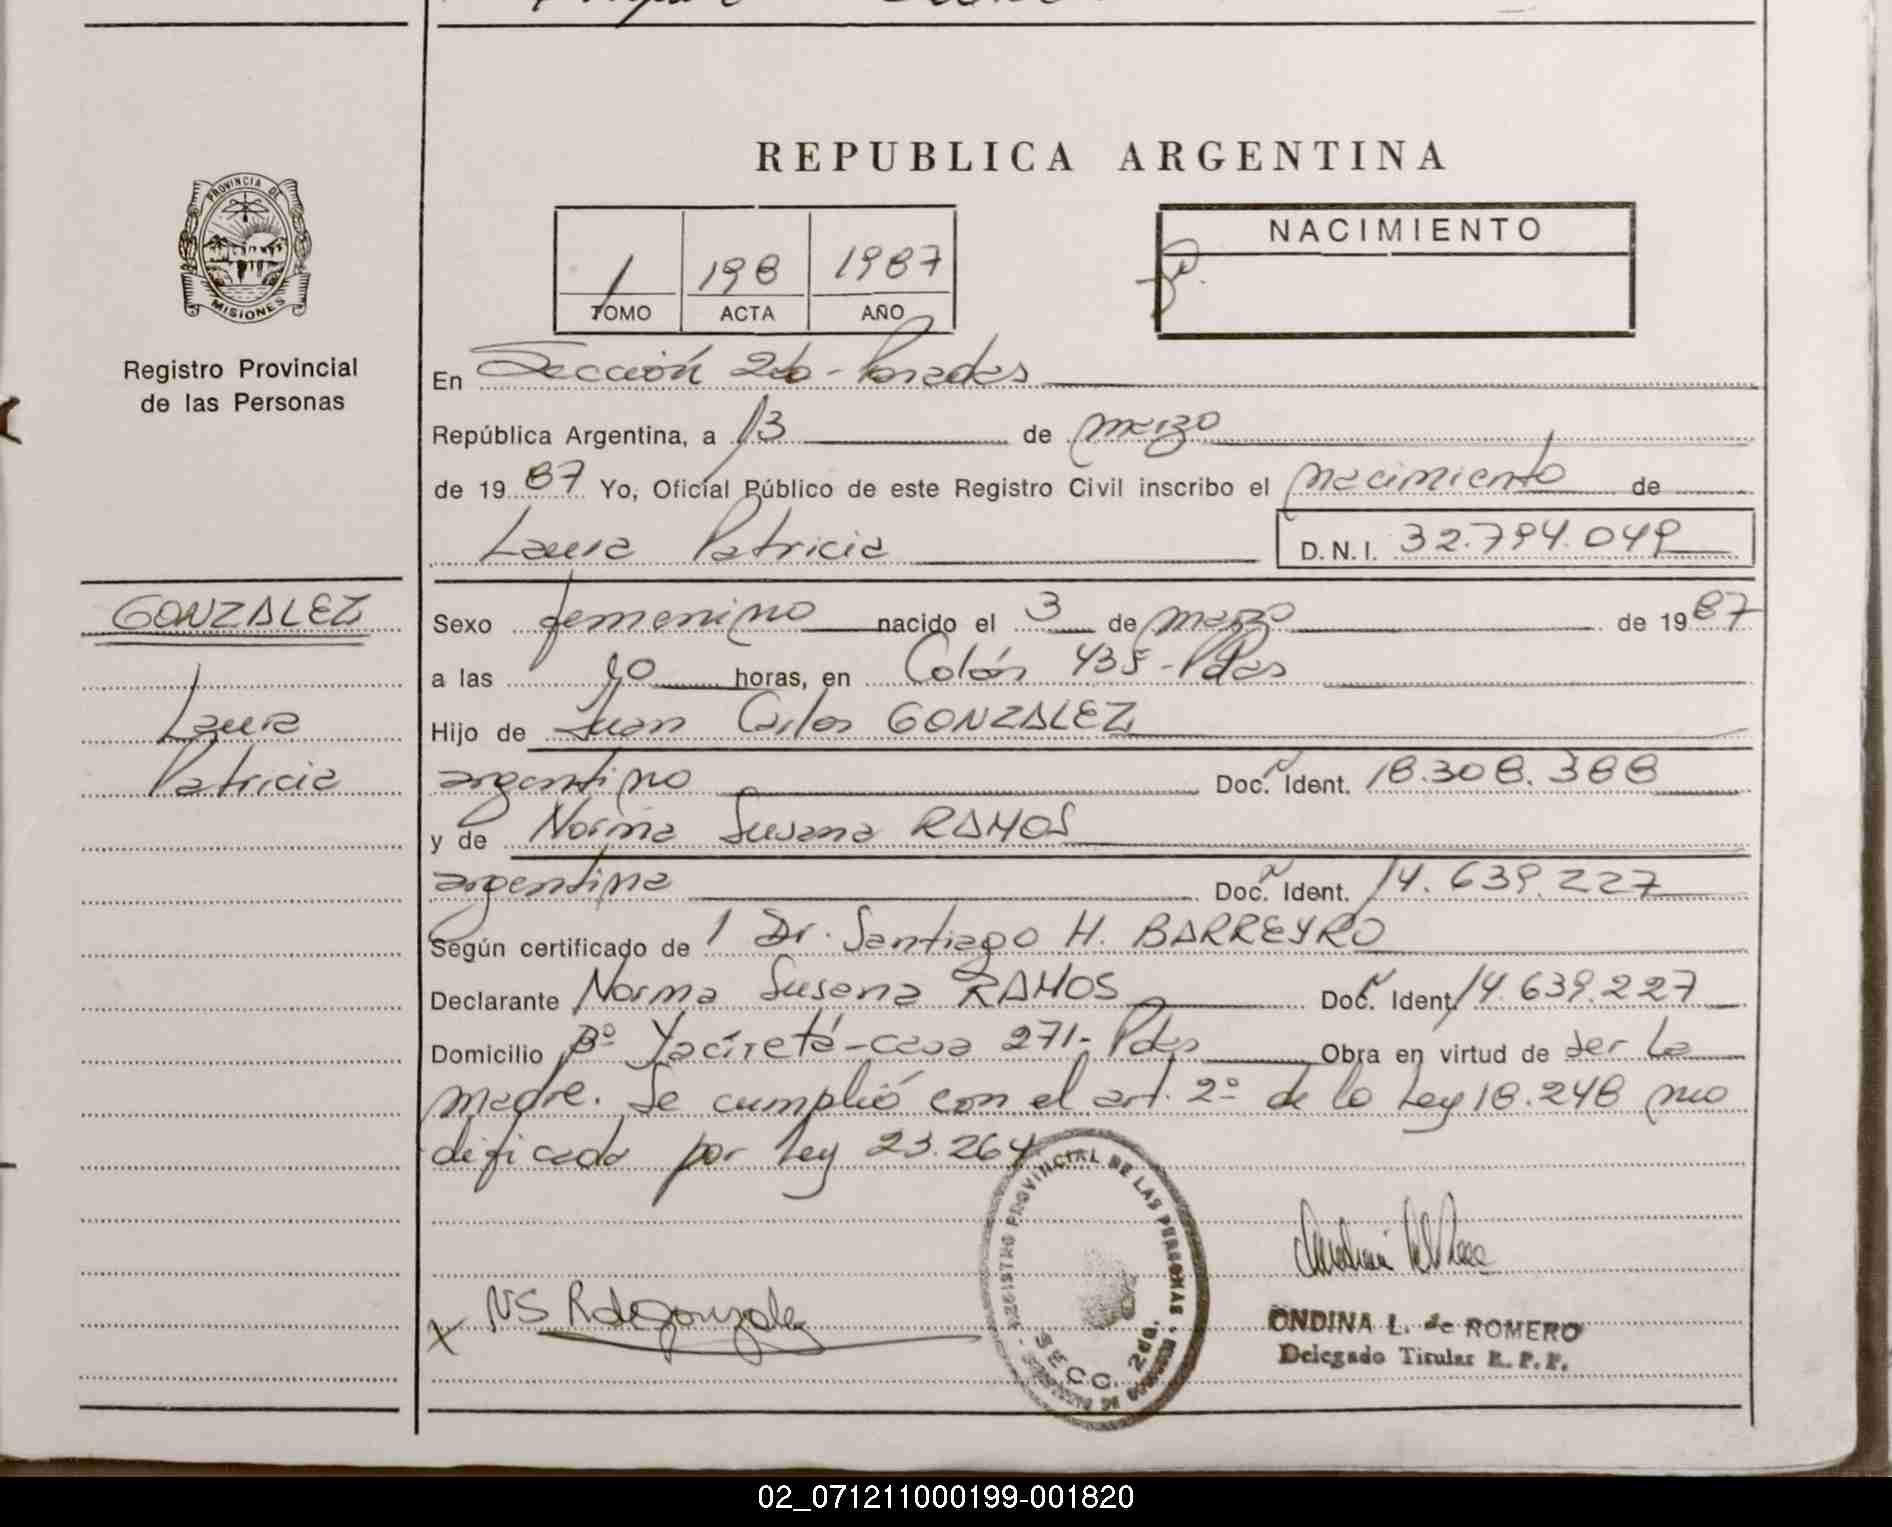 PROVINCIA DE
MISIONES
Registro Provincial
de las Personas
REPUBLICA ARGENTINA
1 198 1987
TOMO ACTA AÑO
NACIMIENTO
En Sección 2da - Posadas
República Argentina, a 13 de marzo
de 1987 Yo, Oficial Público de este Registro Civil inscribo el nacimiento de
Laura Patricia D.N.I. 32.794.049
GONZALEZ
Laura
Patricia
Sexo femenino nacido el 3 de marzo de 1987
a las horas, en Colón 435 - Pdas
Hijo de Juan Carlos GONZALEZ
argentino Doc. Ident. 18.308.388
y de Norma Susana RAMOS
argentina Doc. Ident. 14.639.227
Según certificado de 1 Dr. Santiago H. BARREYRO
Declarante Norma Susana RAMOS Doc. Ident. 14.639.227
Domicilio Bº Yaciretá - casa 271 - Pdas Obra en virtud de ser la
madre. Se cumplió con el art. 2º de la Ley 18.248 mo
dificada por Ley 23.264
REGISTRO PROVINCIAL DE LAS PERSONAS
SECC. 2da.
NS R de Gonzalez
ONDINA L. de ROMERO
Delegado Titular R. P. P.
02_071211000199-001820